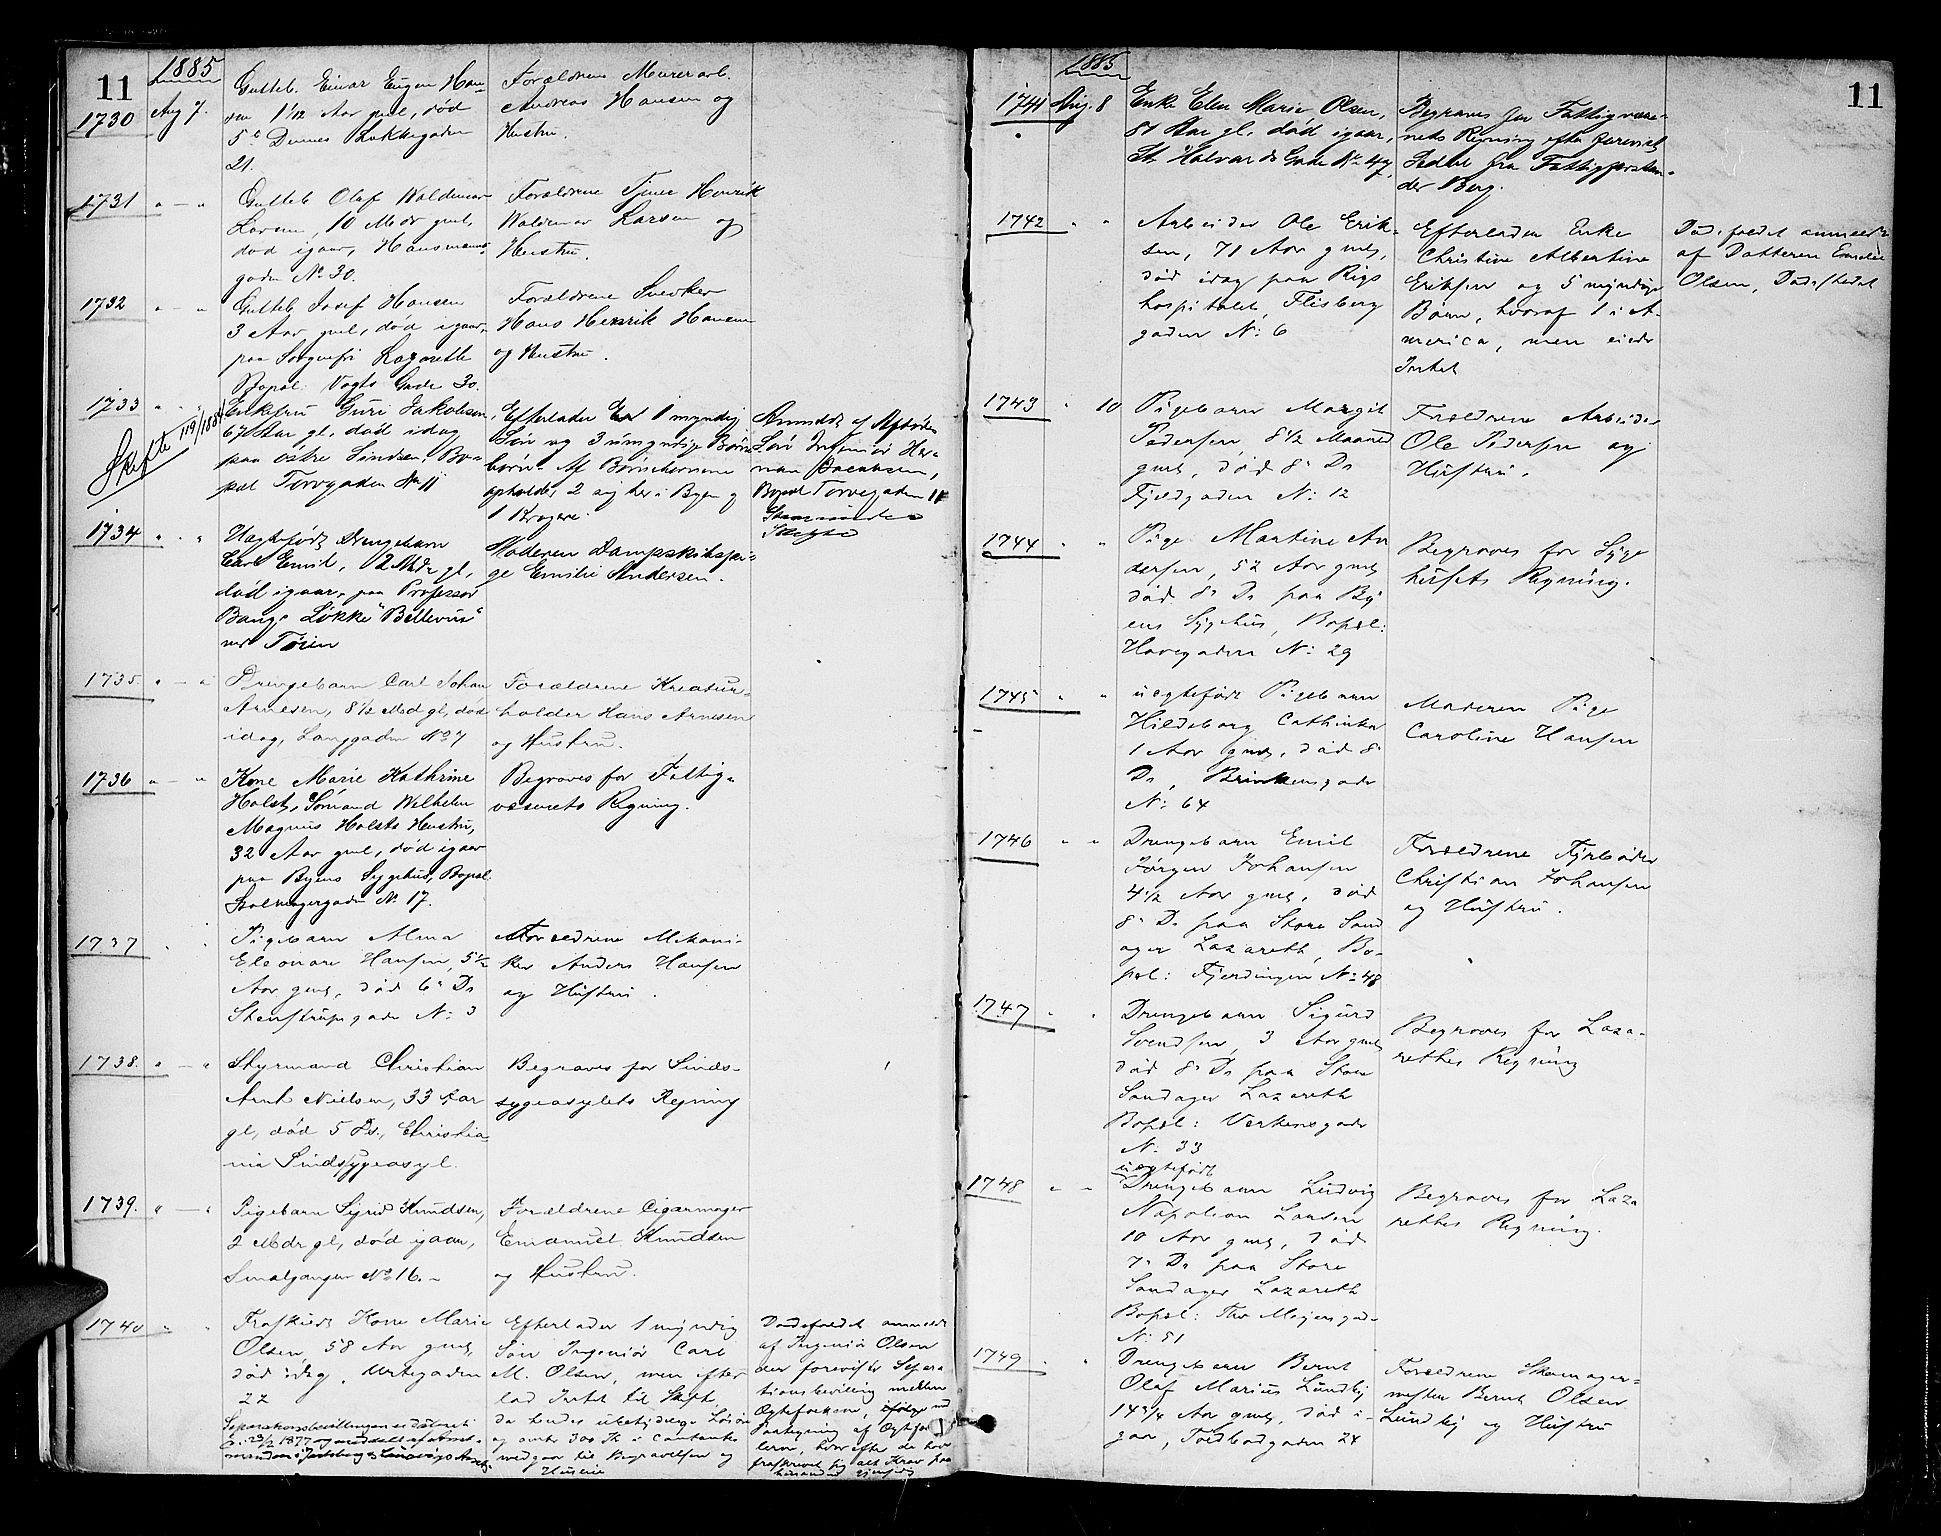 11
1885
1730 Aug 7. Gutteb. Einar Eugen Han-
sen 1 1/12 Aar gml, død
5te Dennes Lakkegaden
21.
Forældrene Murerarb.
Andreas Hansen og
Hustru.
1731 " — " Gutteb Olaf Waldemar
Larsen, 10 Mdr gml,
død igaar, Hausmanns-
gaden No 30.
Forældrene Tjener Henrik
Waldemar Larsen og
Hustru.
1732 " — " Gutteb Josef Hansen
3 Aar gml, død igaar
paa Sorgenfri Lazareth
Bopæl Vogts Gade 30.
Forældrene Snedker
Hans Henrik Hansen
og Hustru.
1733 " " Enkefru Guri Jakobsen,
67 Aar gl, død idag
paa østre Sindsen, Bo-
pæl Torvgaden No 11
Skifte 119/1884
Efterlader 1 myndig
Søn og 3 umyndige Børne
børn. Af Børnebørnene
opholde, 2 sig her i Byen og
1 Kragerø.
Anmeldt af Afdødes
Søn Ingeniør Her-
man Jacobsen,
Bopæl Torvegaden 11
Skifte
1734 " " Uægtefødt Drengebarn
Carl Emil, 2 Mdr gl,
død igaar, paa Professor
Bangs Løkke "Bellevue"
ved Tøien
Moderen Dampskibspi-
ge Emilie Andersen.
1735 " — " Drengebarn Carl Johan
Arnesen, 8 1/2 Md gl, død
idag, Langgaden No 7
Forældrene Kreatur-
holder Hans Arnesen
og Hustru.
1736 " — " Kone Marie Kathrine
Holst, Sømand Wilhelm
Magnus Holsts Hustru,
32 Aar gml, død igaar
paa Byens Sygehus, Bopæl
Stolmagergaden No 17.
Begraves for Fattig-
væsenets Regning.
1737 " " Pigebarn Alma
Eleonore Hansen, 5 1/2
Aar gml, død 6te Ds
Stenstrupsgade No 3
Forældrene Mekani-
ker Anders Hansen
og Hustru.
1738. " — " Styrmand Christian
Arnt Nielsen, 33 Aar
gl, død 5 Ds, Christia-
nia Sindssygeasyl.
Begraves for Sinds-
sygeasylets Regning
1739. " — " Pigebarn Sigrid Knudsen,
2 Mdr gl, død igaar,
Smalgangen No 16.
Forældrene Cigarmager
Emanuel Knudsen
og Hustru.
1740 " " Fraskilt Kone Marie
Olsen, 58 Aar gml,
død idag, Urtegaden
22
Separationsbevillingen
23/2 1877
Efterlader 1 myndig
Søn Ingeniør Carl
M. Olsen, men efter
lod Intet til Skifte,
da hendes ubetydelige Løsøre
og omtr 300 Kr i Contanter
medgaar til Begravelsen og
Husleie
Dødsfaldet anmeldt
af Ingeniør Olsen
der foreviste Separa
tionsbevilling mellem
Ægtefolkene,
Paategning af Ægtefol
kene, hvorefter de have
frafaldt sig alt Krav paa
hinanden
11
1885
1741 Aug. 8 Enke Elen Marie Olsen,
81 Aar gl, død igaar,
St Halvards Gade No 47.
Begraves for Fattigvæse-
nets Regning efter forevist
Seddel fra Fattigforstan-
der Berg.
1742 " " Arbeider Ole Erik-
sen, 71 Aar gml,
død idag paa Rigs
hospitalet, Flisberg
gaden No 6
Efterlader Enke
Christine Albertine
Eriksen og 5 myndige
Børn, hvoraf 1 i A-
merica, men eiede
Intet
Dødsfaldet anmeldt
af Datteren Emelie
Olsen, Dødsstedet
1743 " 10 Pigebarn Margit
Pedersen 8 1/2 Maaned
gml, død 8de Ds
Fjeldgaden No 12
Forældrene Arbeider
Ole Pedersen og
Hustru.
1744 " " Pige Martine An
dersen, 52 Aar gml,
død 8de Ds paa By
ens Sygehus, Bopæl:
Havegaden No 29
Begraves for Syge
husets Regning.
1745 " " uægtefødt Pigebarn
Hildeborg Cathinka
1 Aar gml, død 8de
Ds, Brinkensgade
No 64
Moderen Pige
Caroline Hansen
1746 " " Drengebarn Emil
Jørgen Johansen
4 1/2 Aar gml, død
8de Ds paa Store Sand
ager Lazareth, Bo-
pæl: Fjerdingen No 48
Forældrene Fyrbøder
Christian Johansen
og Hustru.
1747 " " Drengebarn Sigurd
Svendsen, 3 Aar gml
død 8de Ds paa Store
Sandager Lazareth
Bopæl: Verkensgade
No 33
Begraves for Laza-
rethets Regning
1748 " " uægtefødt
Drengebarn Ludvig
Napoleon Larsen
10 Aar gml, død
7de Ds paa Store
Sandager Lazareth
Bopæl: Thv Meyersgade
No 51
Begraves for Laza
rethets Regning.
1749 " " Drengebarn Bernt
Olaf Marius Lundby
14 3/4 Aar gml, død i-
gaar, Toldbodgaden 24
Forældrene Skomager-
mester Bernt Olsen
Lundby og Hustru